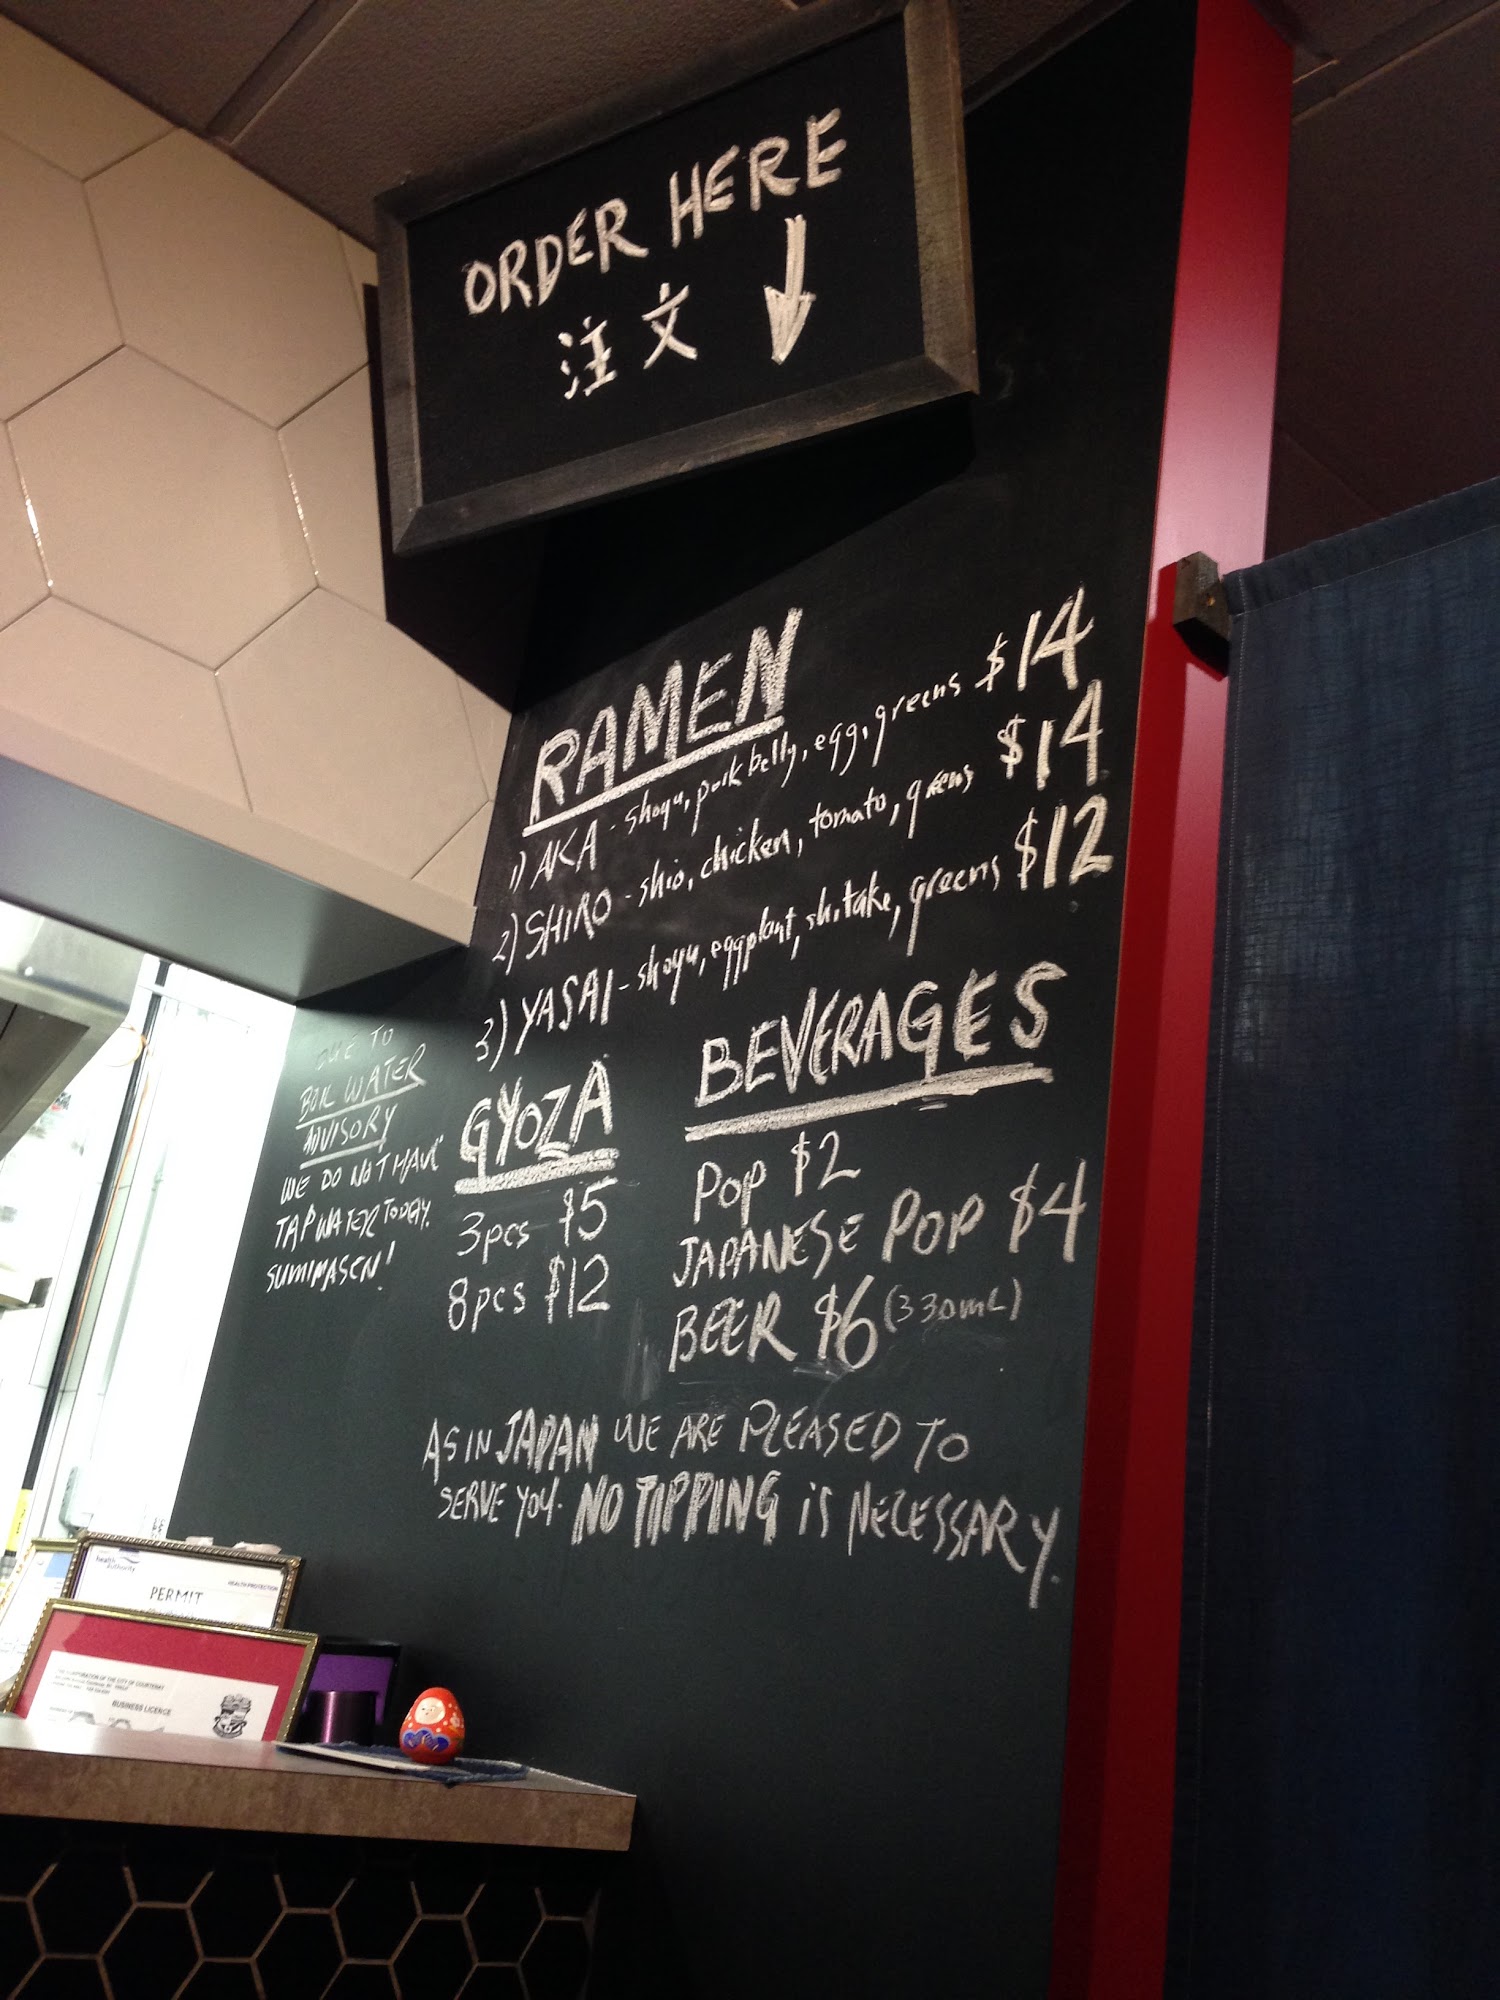 ORDER HERE
注文
RAMEN
1) AKA - shoyu, pork belly, egg, greens $14
2) SHIRO - shio, chicken, tomato, greens $14
3) YASAI - shoyu, eggplant, shitake, greens $12
DUE TO
BOIL WATER
ADVISORY
WE DO NOT HAVE
TAP WATER TODAY.
SUMIMASEN!
GYOZA
3pcs $5
8pcs $12
BEVERAGES
POP $2
JAPANESE POP $4
BEER $6 (330mL)
AS IN JAPAN WE ARE PLEASED TO
SERVE YOU. NO TIPPING iS NECESSARY.
health
authority
HEALTH PROTECTION
PERMIT
THE CORPORATION OF THE CITY OF COURTENAY
BUSINESS LICENCE